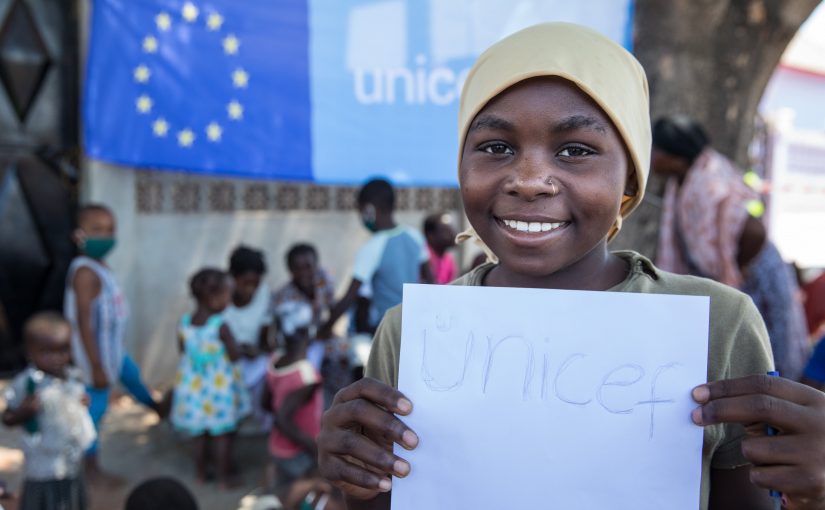 unic
unicef